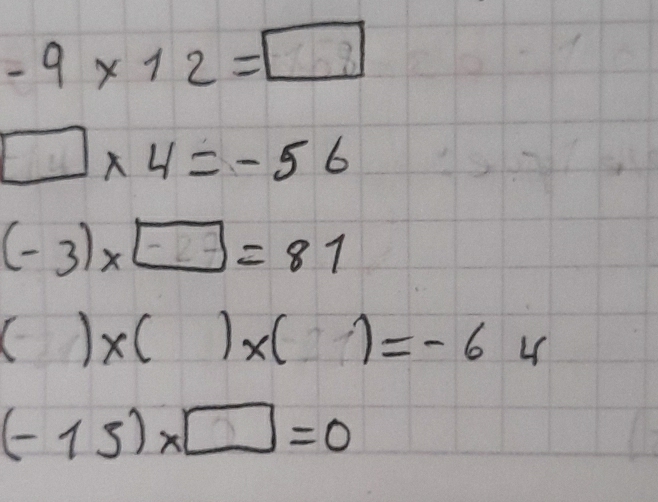 -9 × 12 =
× 4 = -56
(-3) × -27 = 81
( ) × ( ) × ( ) = -64
(-15) × = 0